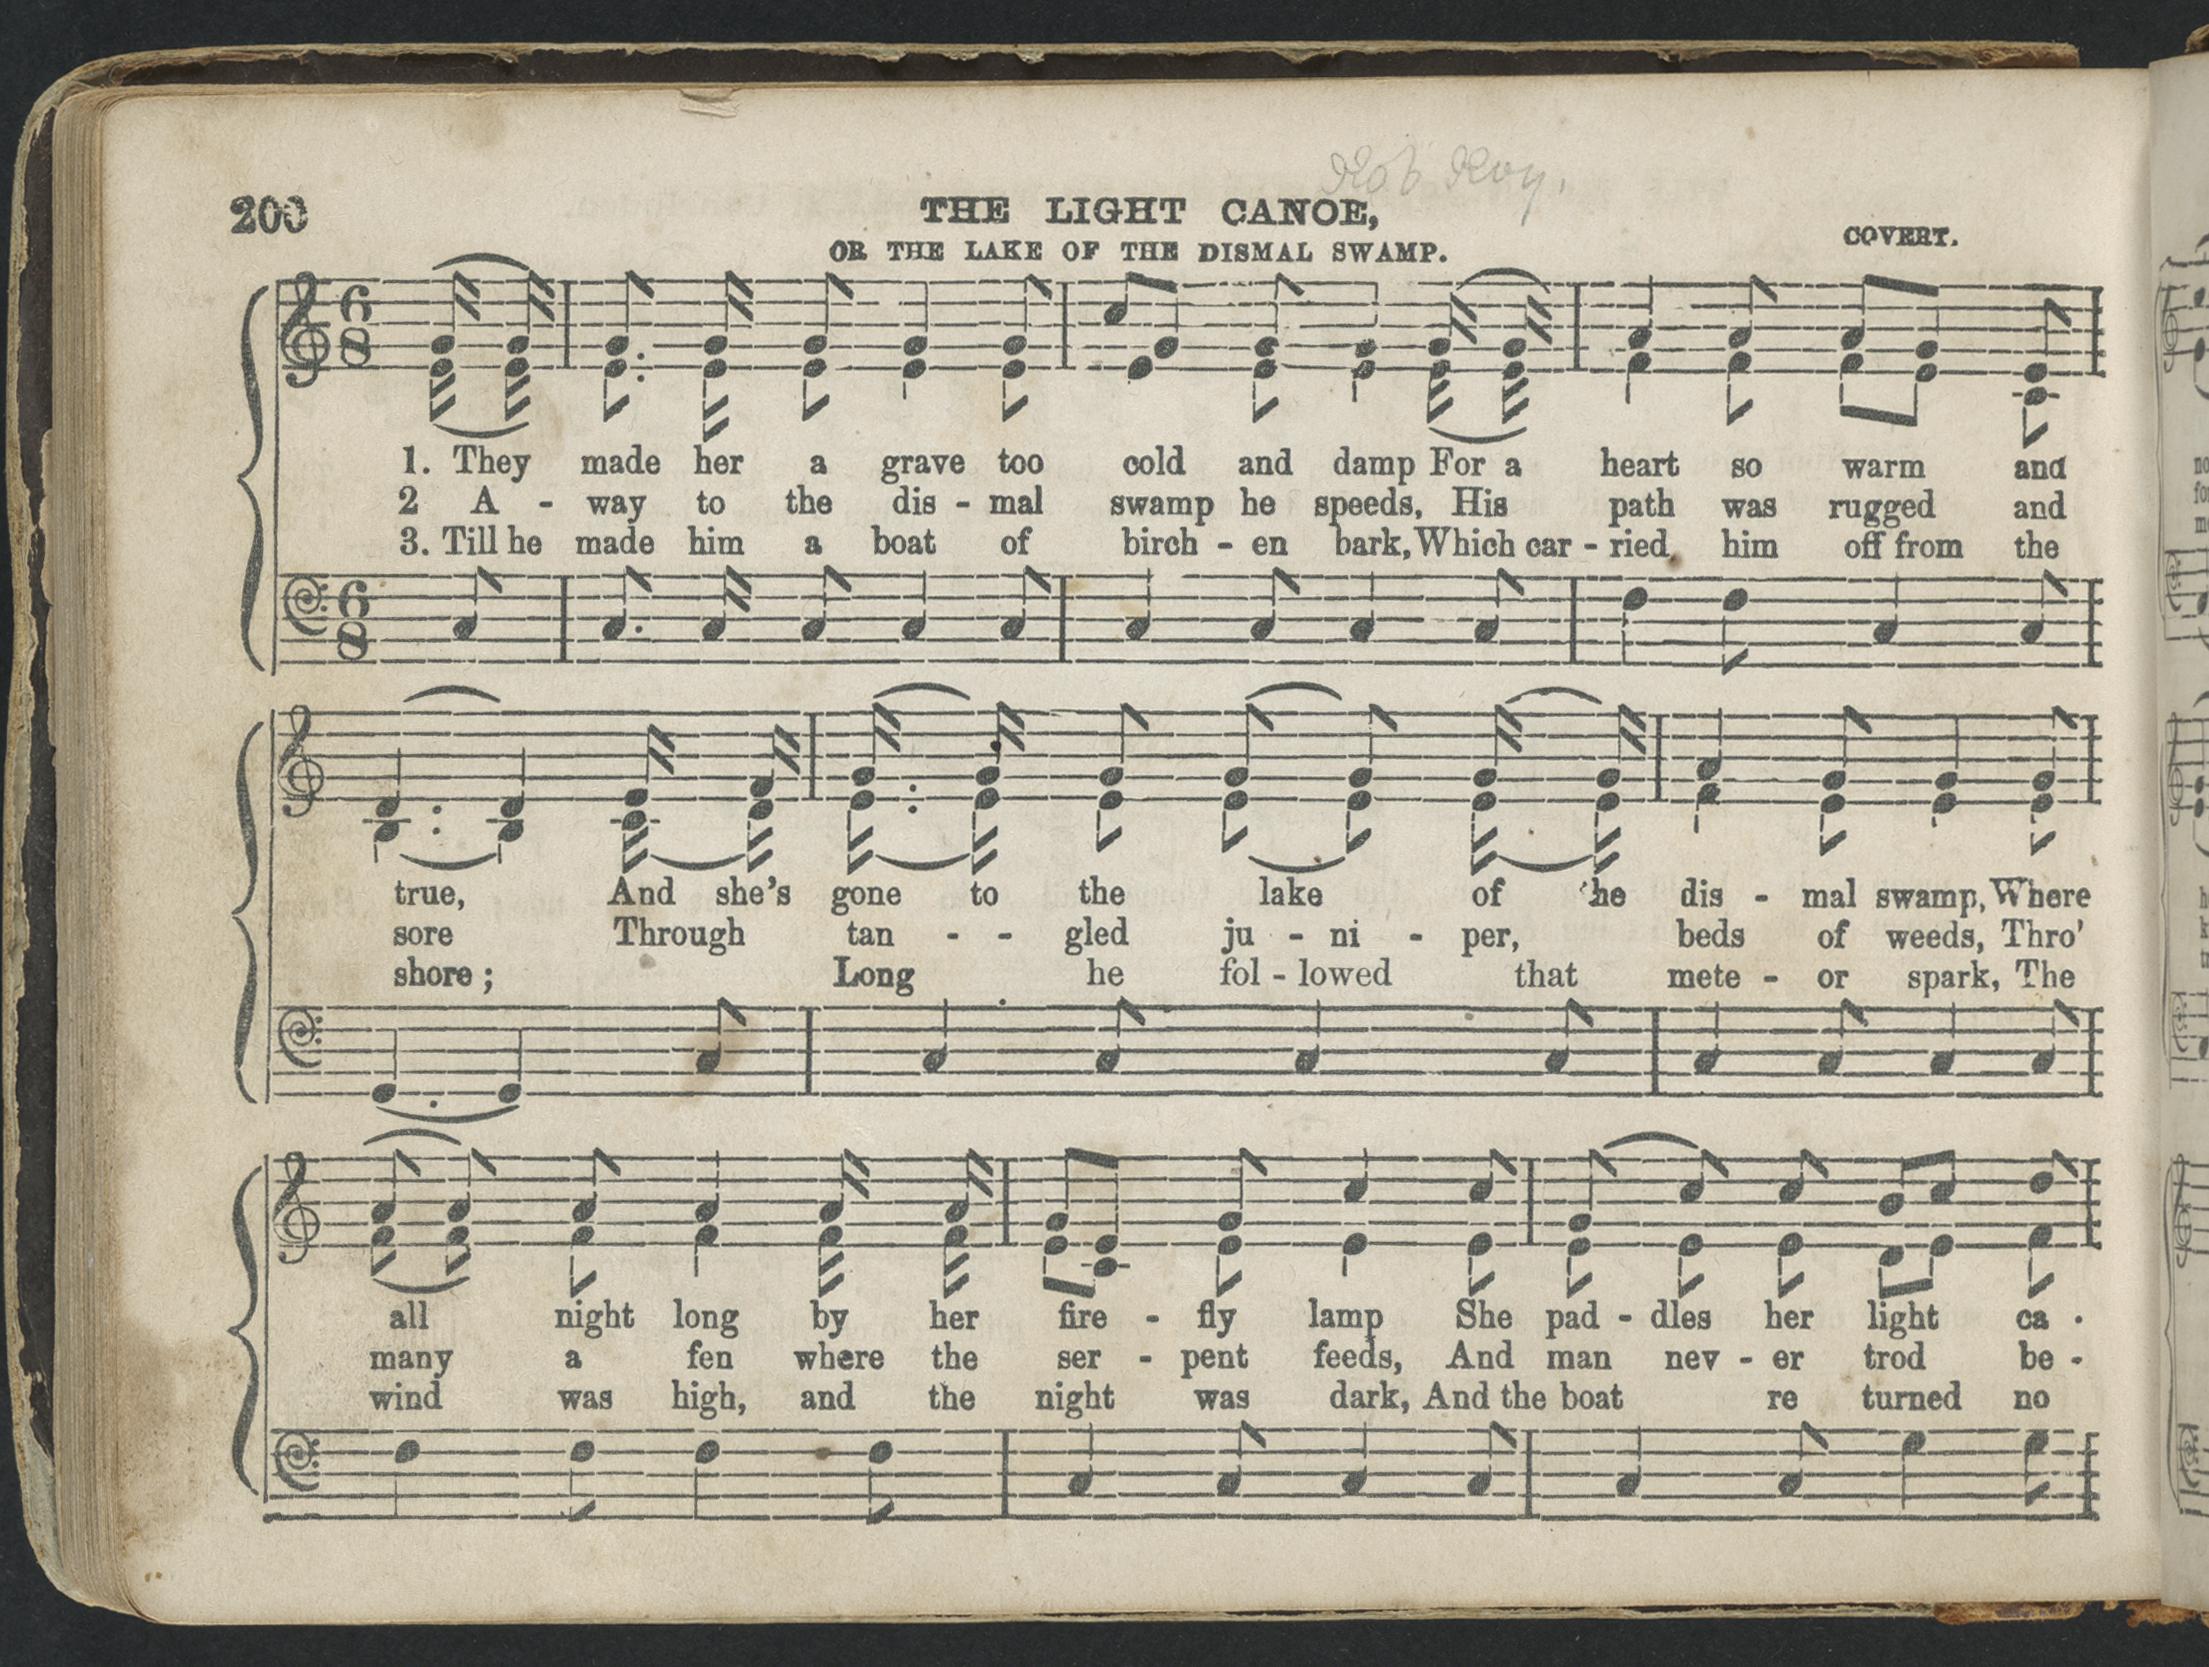 Rob Roy.
200
THE LIGHT CANOE,
OR THE LAKE OF THE DISMAL SWAMP.
COVERT.
6 8
1. They made her a grave too cold and damp For a heart so warm and
2 A - way to the dis - mal swamp he speeds, His path was rugged and
3. Till he made him a boat of birch - en bark, Which car - ried him off from the
6 8
true, And she's gone to the lake of he dis - mal swamp, Where
sore Through tan - - gled ju - ni - per, beds of weeds, Thro'
shore; Long he fol - lowed that mete - or spark, The
all night long by her fire - fly lamp She pad - dles her light ca .
many a fen where the ser - pent feeds, And man nev - er trod be -
wind was high, and the night was dark, And the boat re turned no